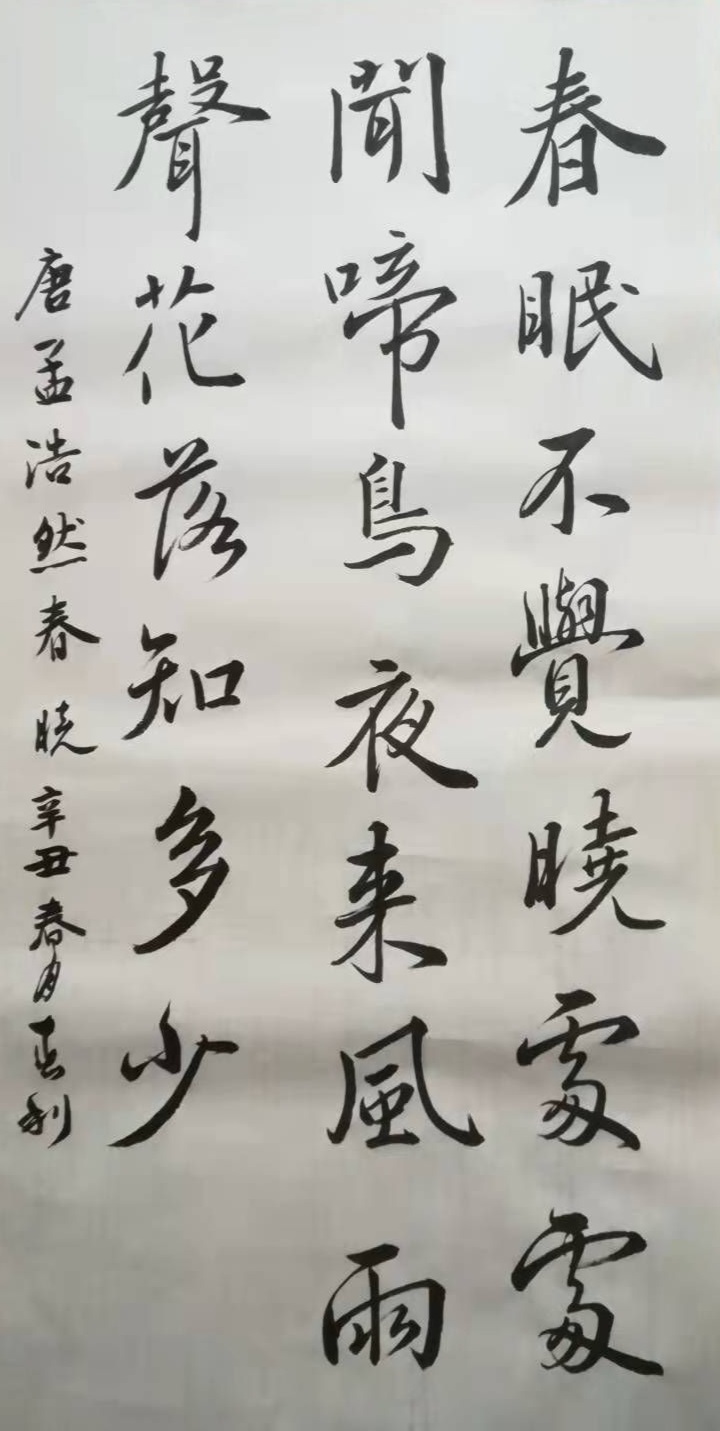 春眠不覺曉處處
聞啼鳥夜来風雨
聲花落知多少
唐孟浩然春曉辛丑春月志利